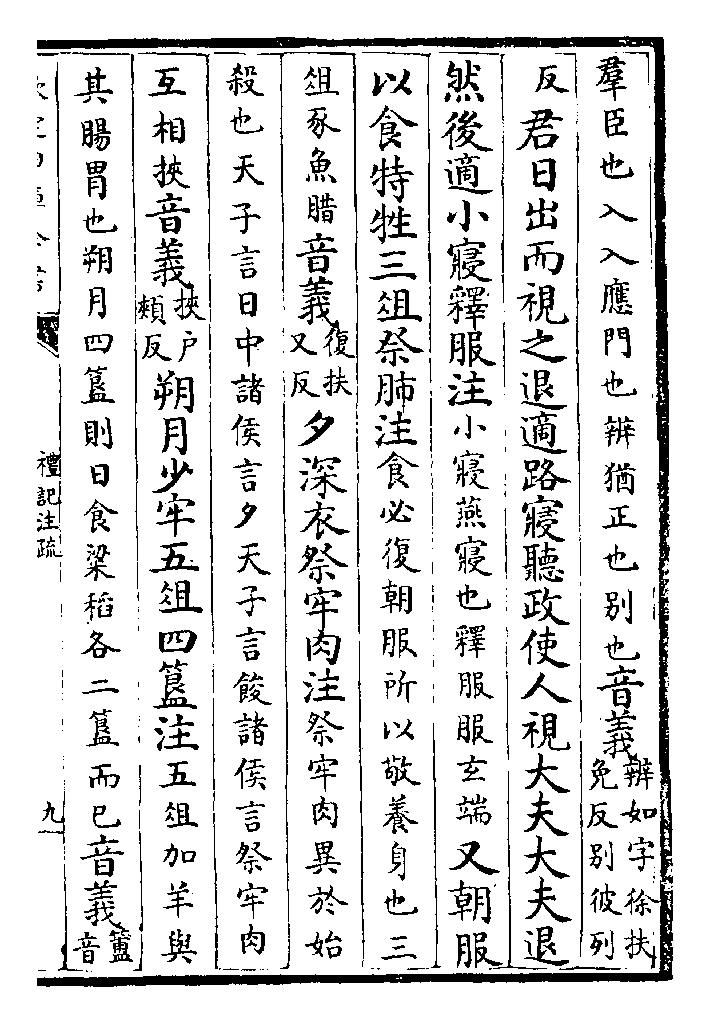 羣臣也入入應門也辨猶正也别也音義辨如字徐扶免反别彼列
反君日出而視之退適路寢聽政使人視大夫大夫退
然後適小寢釋服注小寢燕寢也釋服服玄端又朝服
以食特牲三俎祭肺注食必復朝服所以敬養身也三
俎豕魚腊音義復扶又反夕深衣祭牢肉注祭牢肉異於始
殺也天子言日中諸侯言夕天子言餕諸侯言祭牢肉
互相挾音義挾户頰反朔月少牢五俎四簋注五俎加羊與
其腸胃也朔月四簋則日食粱稻各二簋而已音義簠音
禮記注疏
九